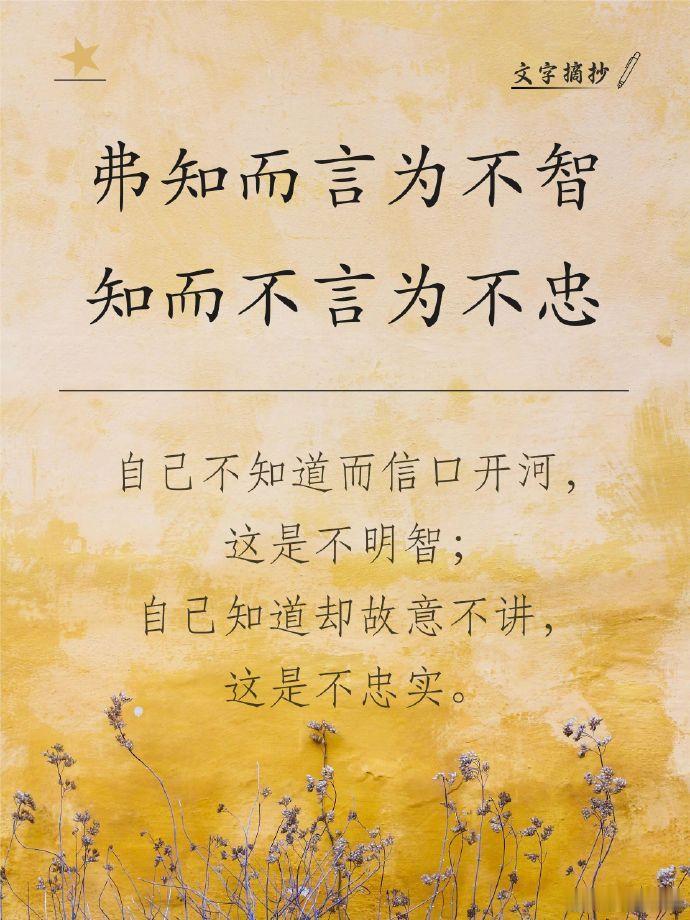 文字摘抄
弗知而言为不智
知而不言为不忠
自己不知道而信口开河，
这是不明智；
自己知道却故意不讲，
这是不忠实。